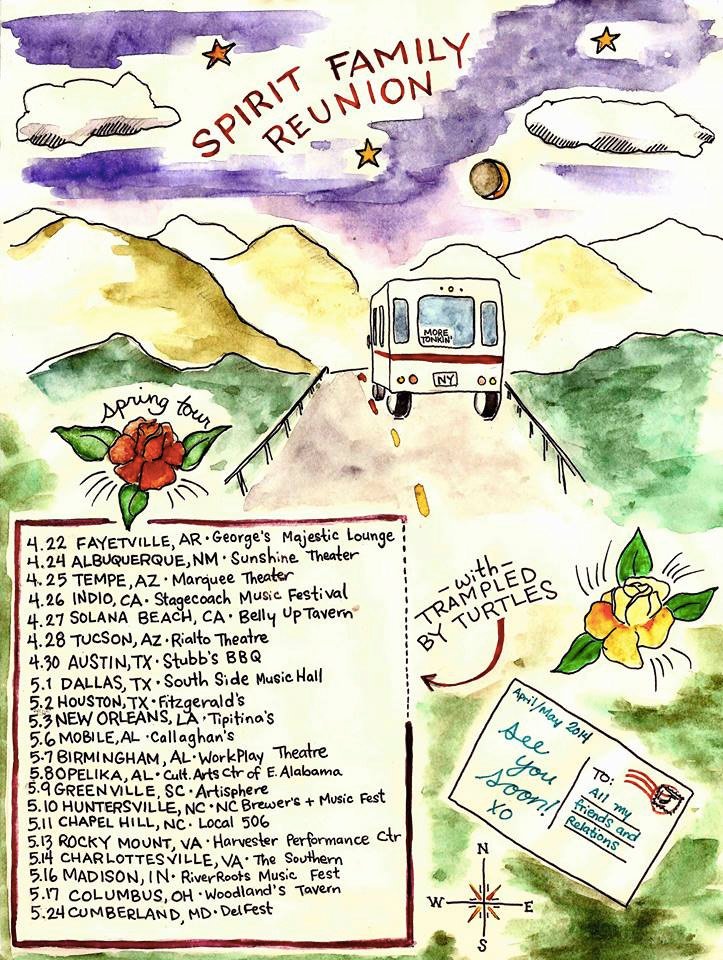 SPIRIT FAMILY
REUNION
MORE
TONKIN'
NY
spring tour
4.22 FAYETVILLE, AR · George's Majestic Lounge
4.24 ALBUQUERQUE, NM · Sunshine Theater
4.25 TEMPE, AZ · Marquee Theater
4.26 INDIO, CA · Stagecoach Music Festival
4.27 SOLANA BEACH, CA · Belly Up Tavern
4.28 TUCSON, AZ · Rialto Theatre
4.30 AUSTIN, TX · Stubb's BBQ
5.1 DALLAS, TX · South Side Music Hall
5.2 HOUSTON, TX · Fitzgerald's
5.3 NEW ORLEANS, LA · Tipitina's
5.6 MOBILE, AL · Callaghan's
5.7 BIRMINGHAM, AL · WorkPlay Theatre
5.8 OPELIKA, AL · Cult. Arts Ctr of E. Alabama
5.9 GREENVILLE, SC · Artisphere
5.10 HUNTERSVILLE, NC · NC Brewer's + Music Fest
5.11 CHAPEL HILL, NC · Local 506
5.13 ROCKY MOUNT, VA · Harvester Performance Ctr
5.14 CHARLOTTESVILLE, VA · The Southern
5.16 MADISON, IN · RiverRoots Music Fest
5.17 COLUMBUS, OH · Woodland's Tavern
5.24 CUMBERLAND, MD · DelFest
-with-
TRAMPLED
BY TURTLES
April/May 2014
See
you
soon!
XO
TO:
All my
friends and
Relations
N
W E
S